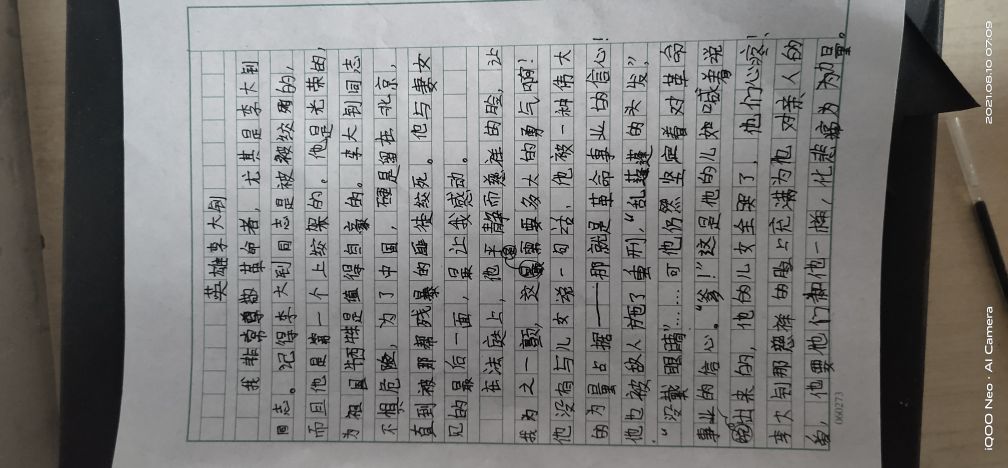 英雄李大钊
我非常尊敬革命者，尤其是李大钊
同志。记得李大钊同志是被被绞死的，
而且他是第一个上绞架的。他是光荣的，
为祖国牺牲是值得自豪的。李大钊同志
不惧危险，为了中国，硬是留在北京，
直到被那帮残暴的匪徒绞死。他与妻女
见的最后一面，最让我感动。
在法庭上，他平静而慈祥的脸，让
我为之一颤，这是需要多大的勇气啊？
他没有与儿女说一句话，他被一种伟大
的力量占据——那就是革命事业的信心！
他也被敌人施了重刑，“乱蓬蓬的头发，”
“没戴眼睛”……可他仍然坚定着对革命
事业的信心。“爹！”这是他的儿如喊着说
出来的，他的儿女全哭了，他们心疼！
李大钊那慈祥的脸上充满为他对亲人的
爱，他要他们和他一样，化悲常为为力量。
000273
2021.08.10 07:09
iQOO Neo · AI Camera